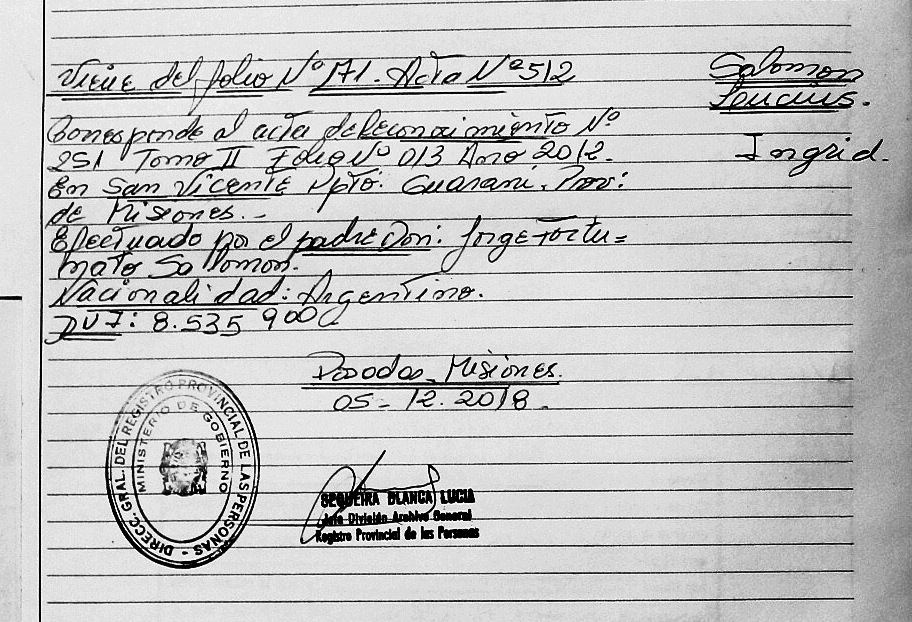 Viene del folio Nº 171. Acta Nº 512
Salomon
Leucius.
Ingrid.
Corresponde al acta de Reconocimiento Nº
251 Tomo II Folio Nº 013 Año 2012.
En San Vicente Dpto. Guarani. Prov:
de Misiones.-
Efectuado por el padre Don: Jorge Fortu=
nato Salomon.
Nacionalidad: Argentino.
DNI: 8.535 900
Posadas - Misiones.
05 - 12. 2018.
DIRECC. GRAL. DEL REGISTRO PROVINCIAL DE LAS PERSONAS -
MINISTERIO DE GOBIERNO
SEQUEIRA BLANCA LUCIA
Jefe División Archivo General
Registro Provincial de las Personas